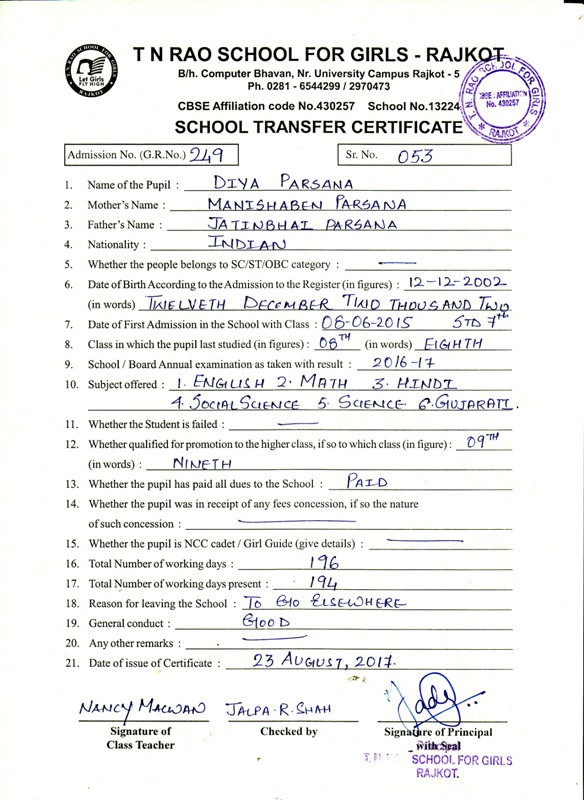 T. N. RAO SCHOOL FOR GIRLS
Let Girls
FLY HIGH
RAJKOT
T N RAO SCHOOL FOR GIRLS - RAJKOT
B/h. Computer Bhavan, Nr. University Campus Rajkot - 5
Ph. 0281 - 6544299 / 2970473
CBSE Affiliation code No.430257 School No.13224
T. N. RAO SCHOOL FOR GIRLS
CBSE : AFFILIATION
No. 430257
RAJKOT
SCHOOL TRANSFER CERTIFICATE
Admission No. (G.R.No.) 249 Sr. No. 053
1. Name of the Pupil : DIYA PARSANA
2. Mother's Name : MANISHABEN PARSANA
3. Father's Name : JATINBHAI PARSANA
4. Nationality : INDIAN
5. Whether the people belongs to SC/ST/OBC category : —
6. Date of Birth According to the Admission to the Register (in figures) : 12-12-2002
(in words) TWELVETH DECEMBER TWO THOUSAND TWO
7. Date of First Admission in the School with Class : 08-06-2015 STD 7th
8. Class in which the pupil last studied (in figures) : 08TH (in words) EIGHTH
9. School / Board Annual examination as taken with result : 2016-17
10. Subject offered : 1. ENGLISH 2. MATH 3. HINDI
4. SOCIAL SCIENCE 5. SCIENCE 6. GUJARATI.
11. Whether the Student is failed : —
12. Whether qualified for promotion to the higher class, if so to which class (in figure) : 09TH
(in words) : NINETH
13. Whether the pupil has paid all dues to the School : PAID
14. Whether the pupil was in receipt of any fees concession, if so the nature
of such concession : —
15. Whether the pupil is NCC cadet / Girl Guide (give details) : —
16. Total Number of working days : 196
17. Total Number of working days present : 194
18. Reason for leaving the School : TO GO ELSEWHERE
19. General conduct : GOOD
20. Any other remarks : —
21. Date of issue of Certificate : 23 AUGUST, 2017.
NANCY MACWAN JALPA.R.SHAH
Signature of Checked by Signature of Principal
Class Teacher with Seal
SCHOOL FOR GIRLS
RAJKOT.